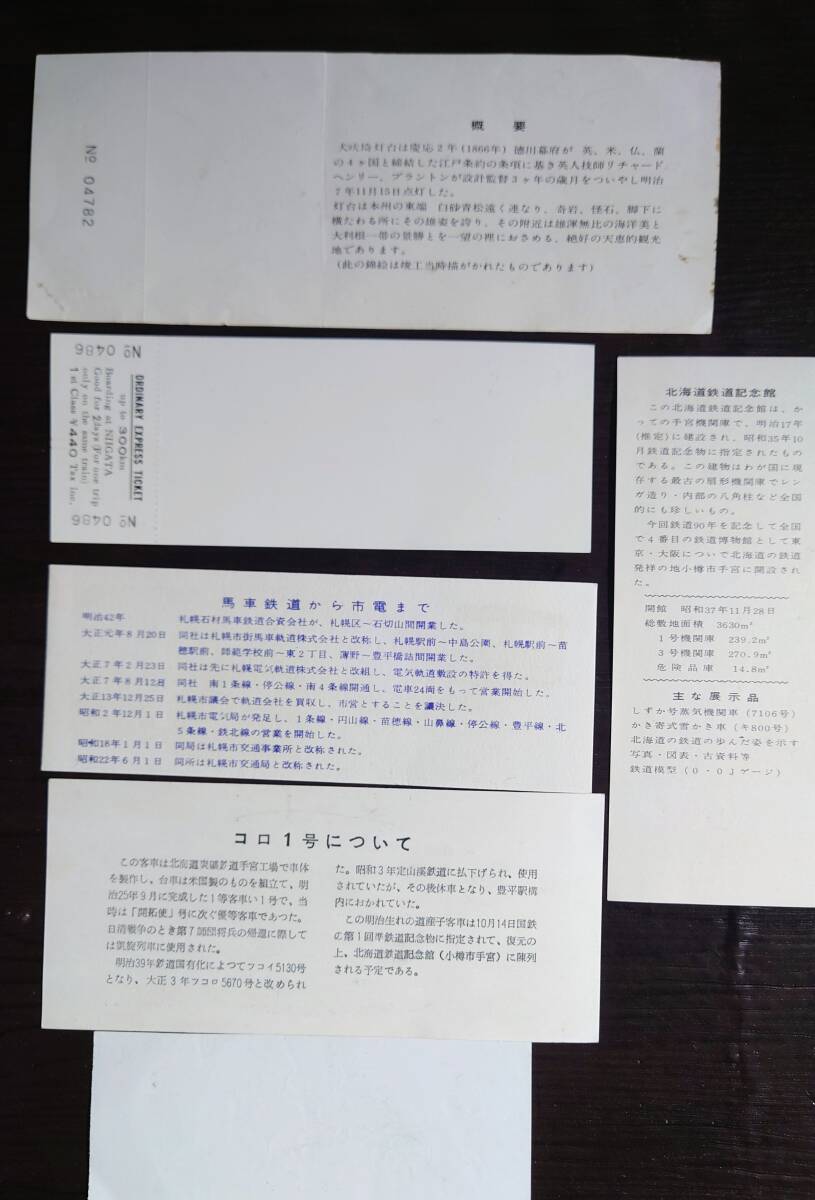 概要
犬吠埼灯台は慶応2年(1866年)徳川幕府が 英、米、仏、蘭
の4ヶ国と締結した江戸条約の条項に基き英人技師リチャード
ヘンリー、ブラントンが設計監督3ヶ年の歳月をついやし明治
7年11月15日点灯した。
灯台は本州の東端 白砂青松遠く連なり、奇岩、怪石、脚下に
横たわる所にその雄姿を誇り、その附近は雄渾無比の海洋美と
大利根一帯の景勝とを一望の裡におさめる、絶好の天恵的観光
地であります。
(此の錦絵は竣工当時描がかれたものであります)
No 04782
No 0486
ORDINARY EXPRESS TICKET
up to 300km
Boarding at NIIGATA
Good for 2 days (For one trip
only on the same train)
1st Class ¥440 Tax inc.
No 0486
北海道鉄道記念館
この北海道鉄道記念館は、か
っての手宮機関庫で、明治17年
(推定)に建設され、昭和35年10
月鉄道記念物に指定されたもの
である。この建物はわが国に現
存する最古の扇形機関庫でレン
ガ造り・内部の八角柱など全国
的にも珍しいもの。
今回鉄道90年を記念して全国
で4番目の鉄道博物館として東
京・大阪について北海道の鉄道
発祥の地小樽市手宮に開設され
た。
開館 昭和37年11月28日
総敷地面積 3630㎡
1号機関庫 239.2㎡
3号機関庫 270.9㎡
危険品庫 14.8㎡
主な展示品
しずか号蒸気機関車(7106号)
かき寄式雪かき車(キ800号)
北海道の鉄道の歩んだ姿を示す
写真・図表・古資料等
鉄道模型(O・OJゲージ)
馬車鉄道から市電まで
明治42年 札幌石材馬車鉄道合資会社が、札幌区~石切山間開業した。
大正元年8月20日 同社は札幌市街馬車軌道株式会社と改称し、札幌駅前~中島公園、札幌駅前~苗
穂駅前、師範学校前~東2丁目、薄野~豊平橋詰間開業した。
大正7年2月23日 同社は先に札幌電気軌道株式会社と改組し、電気軌道敷設の特許を得た。
大正7年8月12日 同社 南1条線・停公線・南4条線開通し、電車24両をもって営業開始した。
大正13年12月25日 札幌市議会で軌道会社を買収し、市営とすることを議決した。
昭和2年12月1日 札幌市電気局が発足し、1条線・円山線・苗穂線・山鼻線・停公線・豊平線・北
5条線・鉄北線の営業を開始した。
昭和18年1月1日 同局は札幌市交通事業所と改称された。
昭和22年6月1日 同所は札幌市交通局と改称された。
コロ1号について
この客車は北海道炭礦鉄道手宮工場で車体
を製作し、台車は米国製のものを組立て、明
治25年9月に完成した1等客車い1号で、当
時は「開拓使」号に次ぐ優等客車であつた。
日清戦争のとき第7師団将兵の帰還に際して
は凱旋列車に使用された。
明治39年鉄道国有化によつてフコイ5130号
となり、大正3年フコロ5670号と改められ
た。昭和3年定山渓鉄道に払下げられ、使用
されていたが、その後休車となり、豊平駅構
内におかれていた。
この明治生れの道産子客車は10月14日国鉄
の第1回準鉄道記念物に指定されて、復元の
上、北海道鉄道記念館(小樽市手宮)に陳列
される予定である。